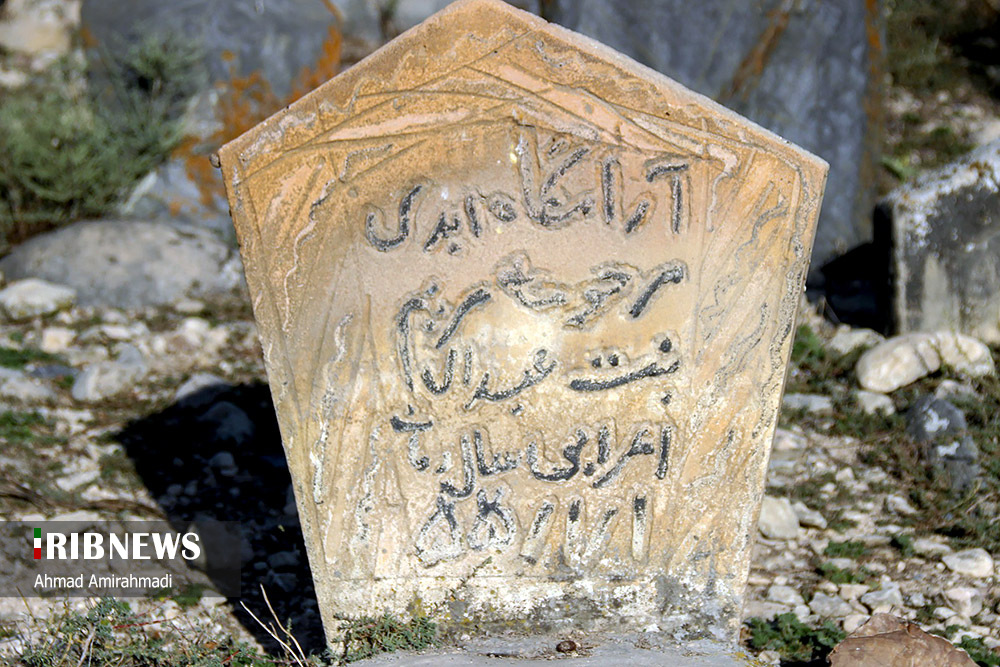 آرامگاه ابدی
مرحومه مریم
بنت عبدال
اعرابی سال
۵۵/۱/۱
IRIBNEWS
Ahmad Amirahmadi